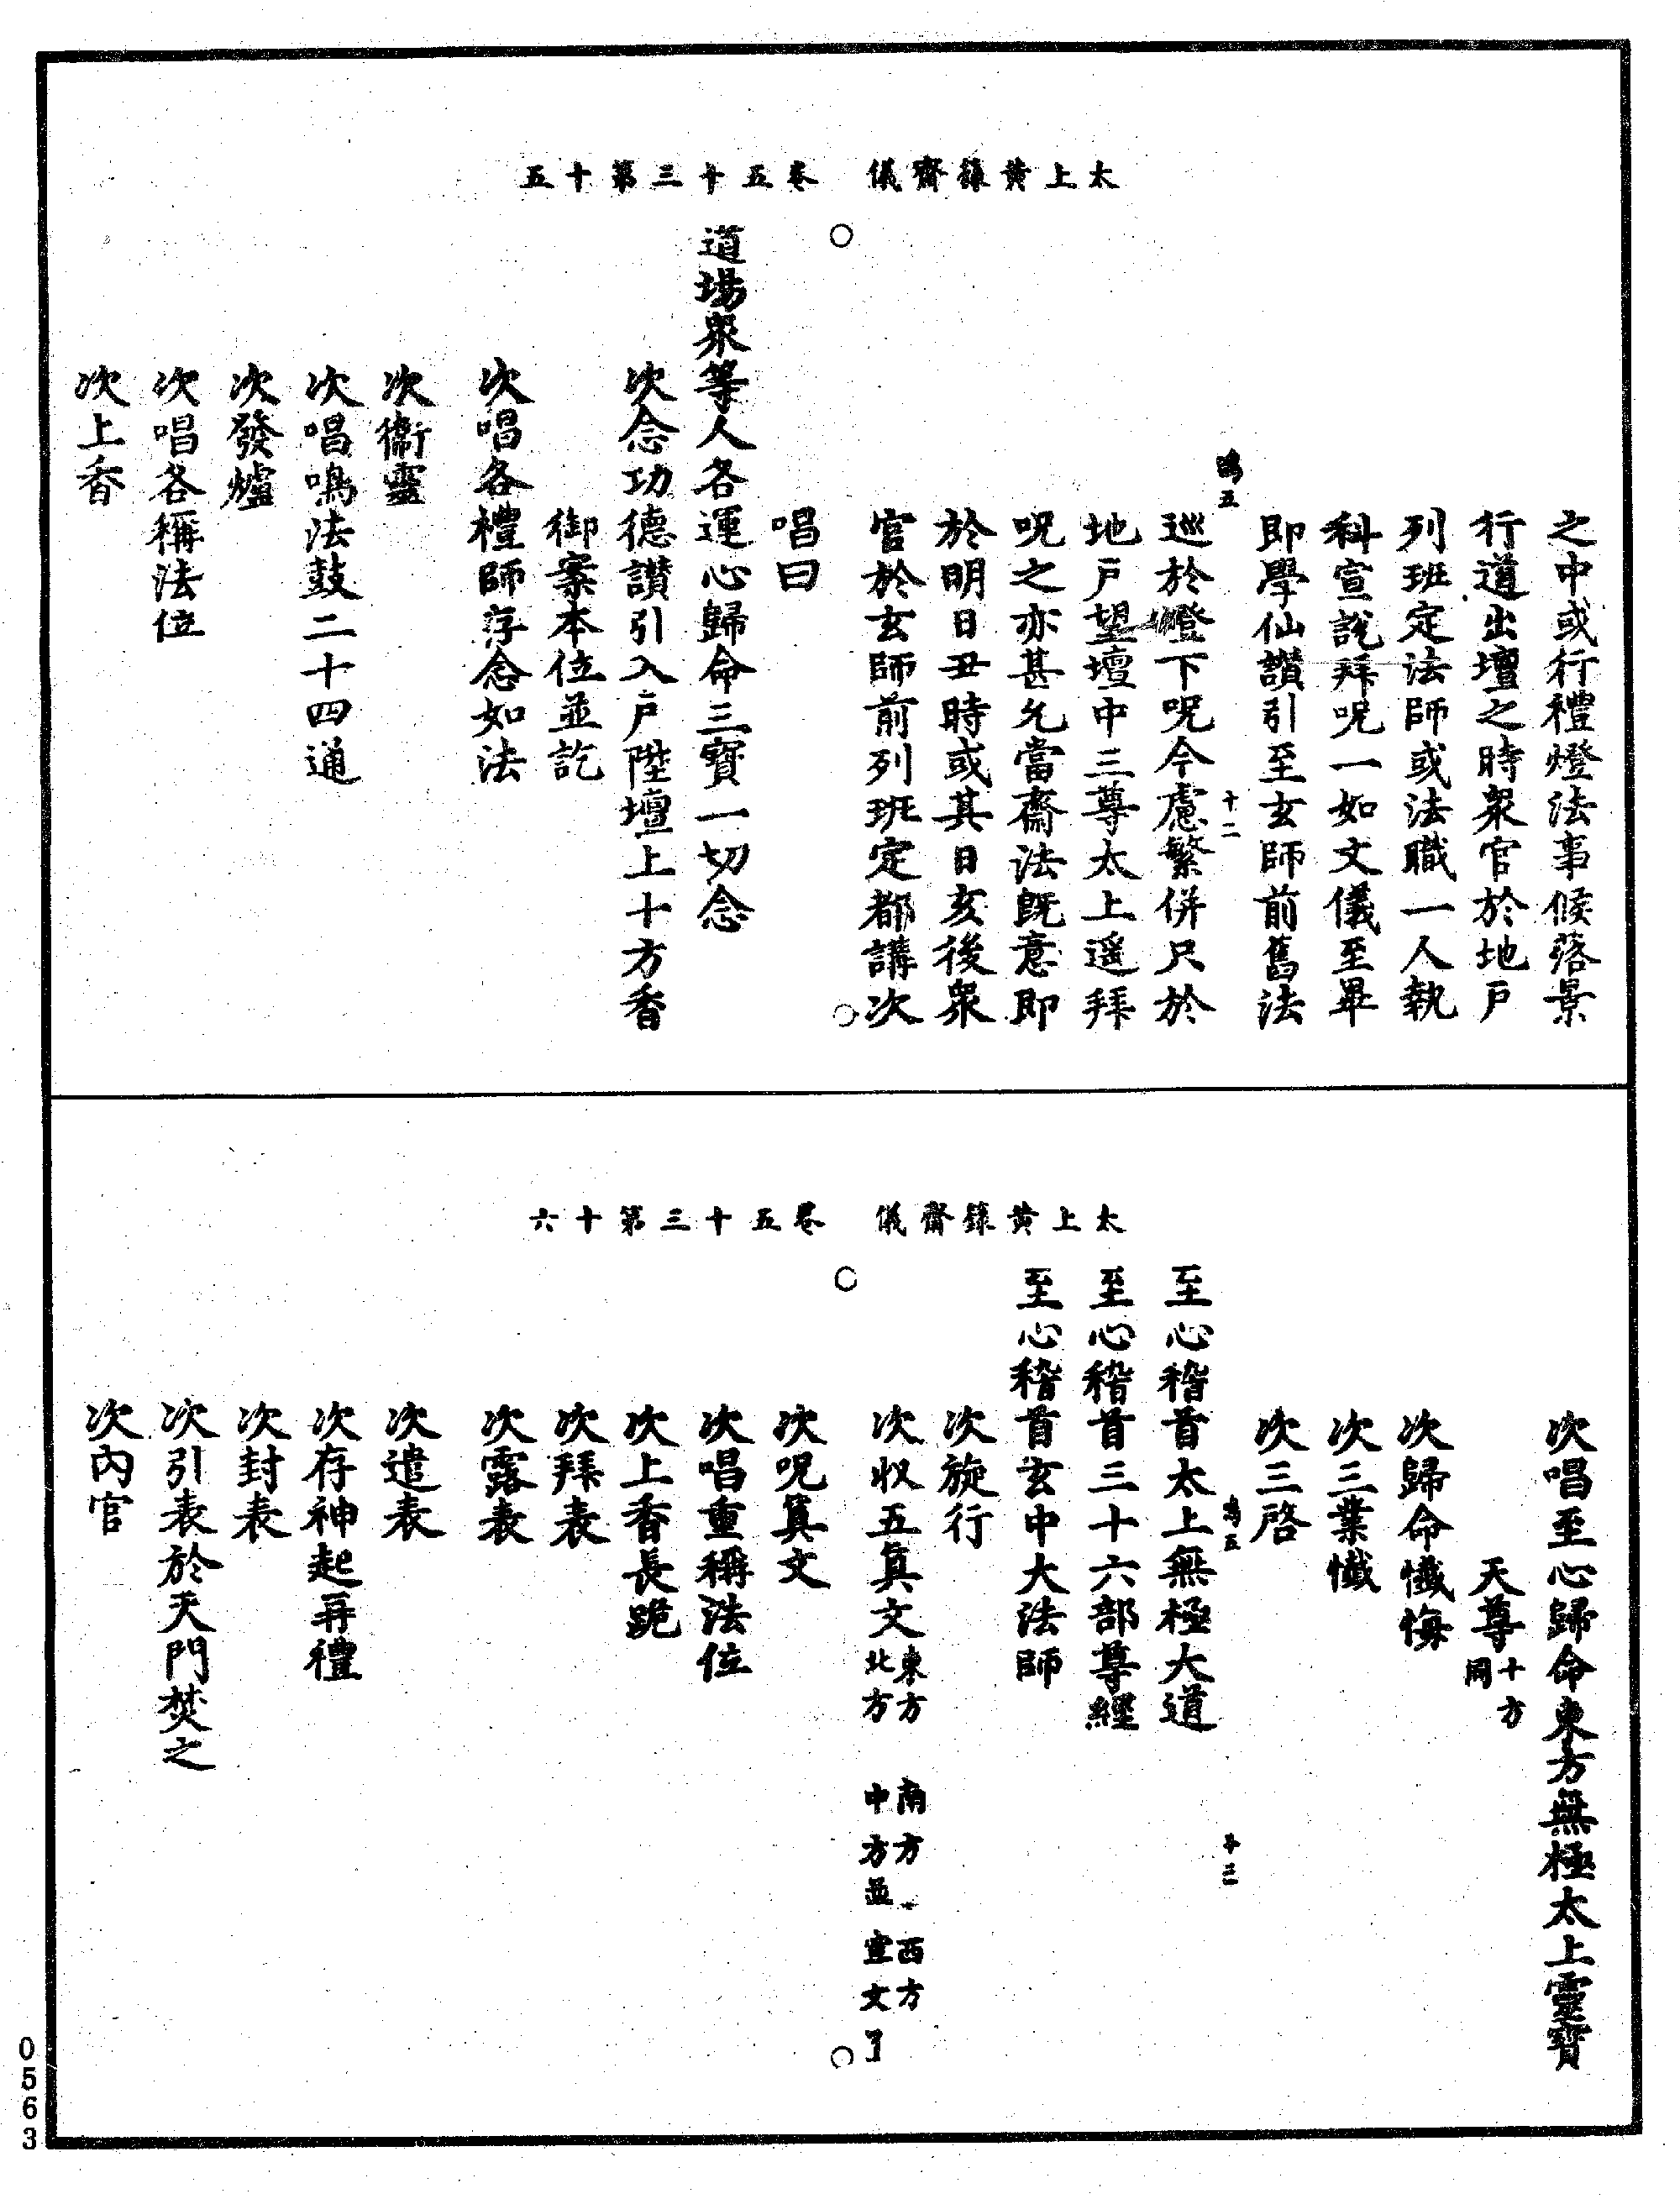 太上黃籙齋儀　卷五十三第十五
之中或行禮燈法事候落景
行道出壇之時衆官於地戶
列班定法師或法職一人執
科宣說拜呪一如文儀至畢
即學仙讚引至玄師前舊法
鳴五　十二
巡於燈下呪今慮繁併只於
地戶望壇中三尊太上遥拜
呪之亦甚允當齋法既意即
於明日丑時或其日亥後衆
官於玄師前列班定都講次
唱曰
道場衆等人各運心歸命三寶一切念
次念功德讚引入戶陞壇上十方香
御案本位並訖
次唱各禮師存念如法
次衞靈
次唱鳴法鼓二十四通
次發爐
次唱各稱法位
次上香
太上黃籙齋儀　卷五十三第十六
次唱至心歸命東方無極太上靈寶
天尊十方同
次歸命懺悔
次三業懺
次三啓
鳴五　十三
至心稽首太上無極大道
至心稽首三十六部尊經
至心稽首玄中大法師
次旋行
次收五真文東方　南方　西方
北方　中方並宣文了
次呪真文
次唱重稱法位
次上香長跪
次拜表
次露表
次遣表
次存神起再禮
次封表
次引表於天門焚之
次內官
0563